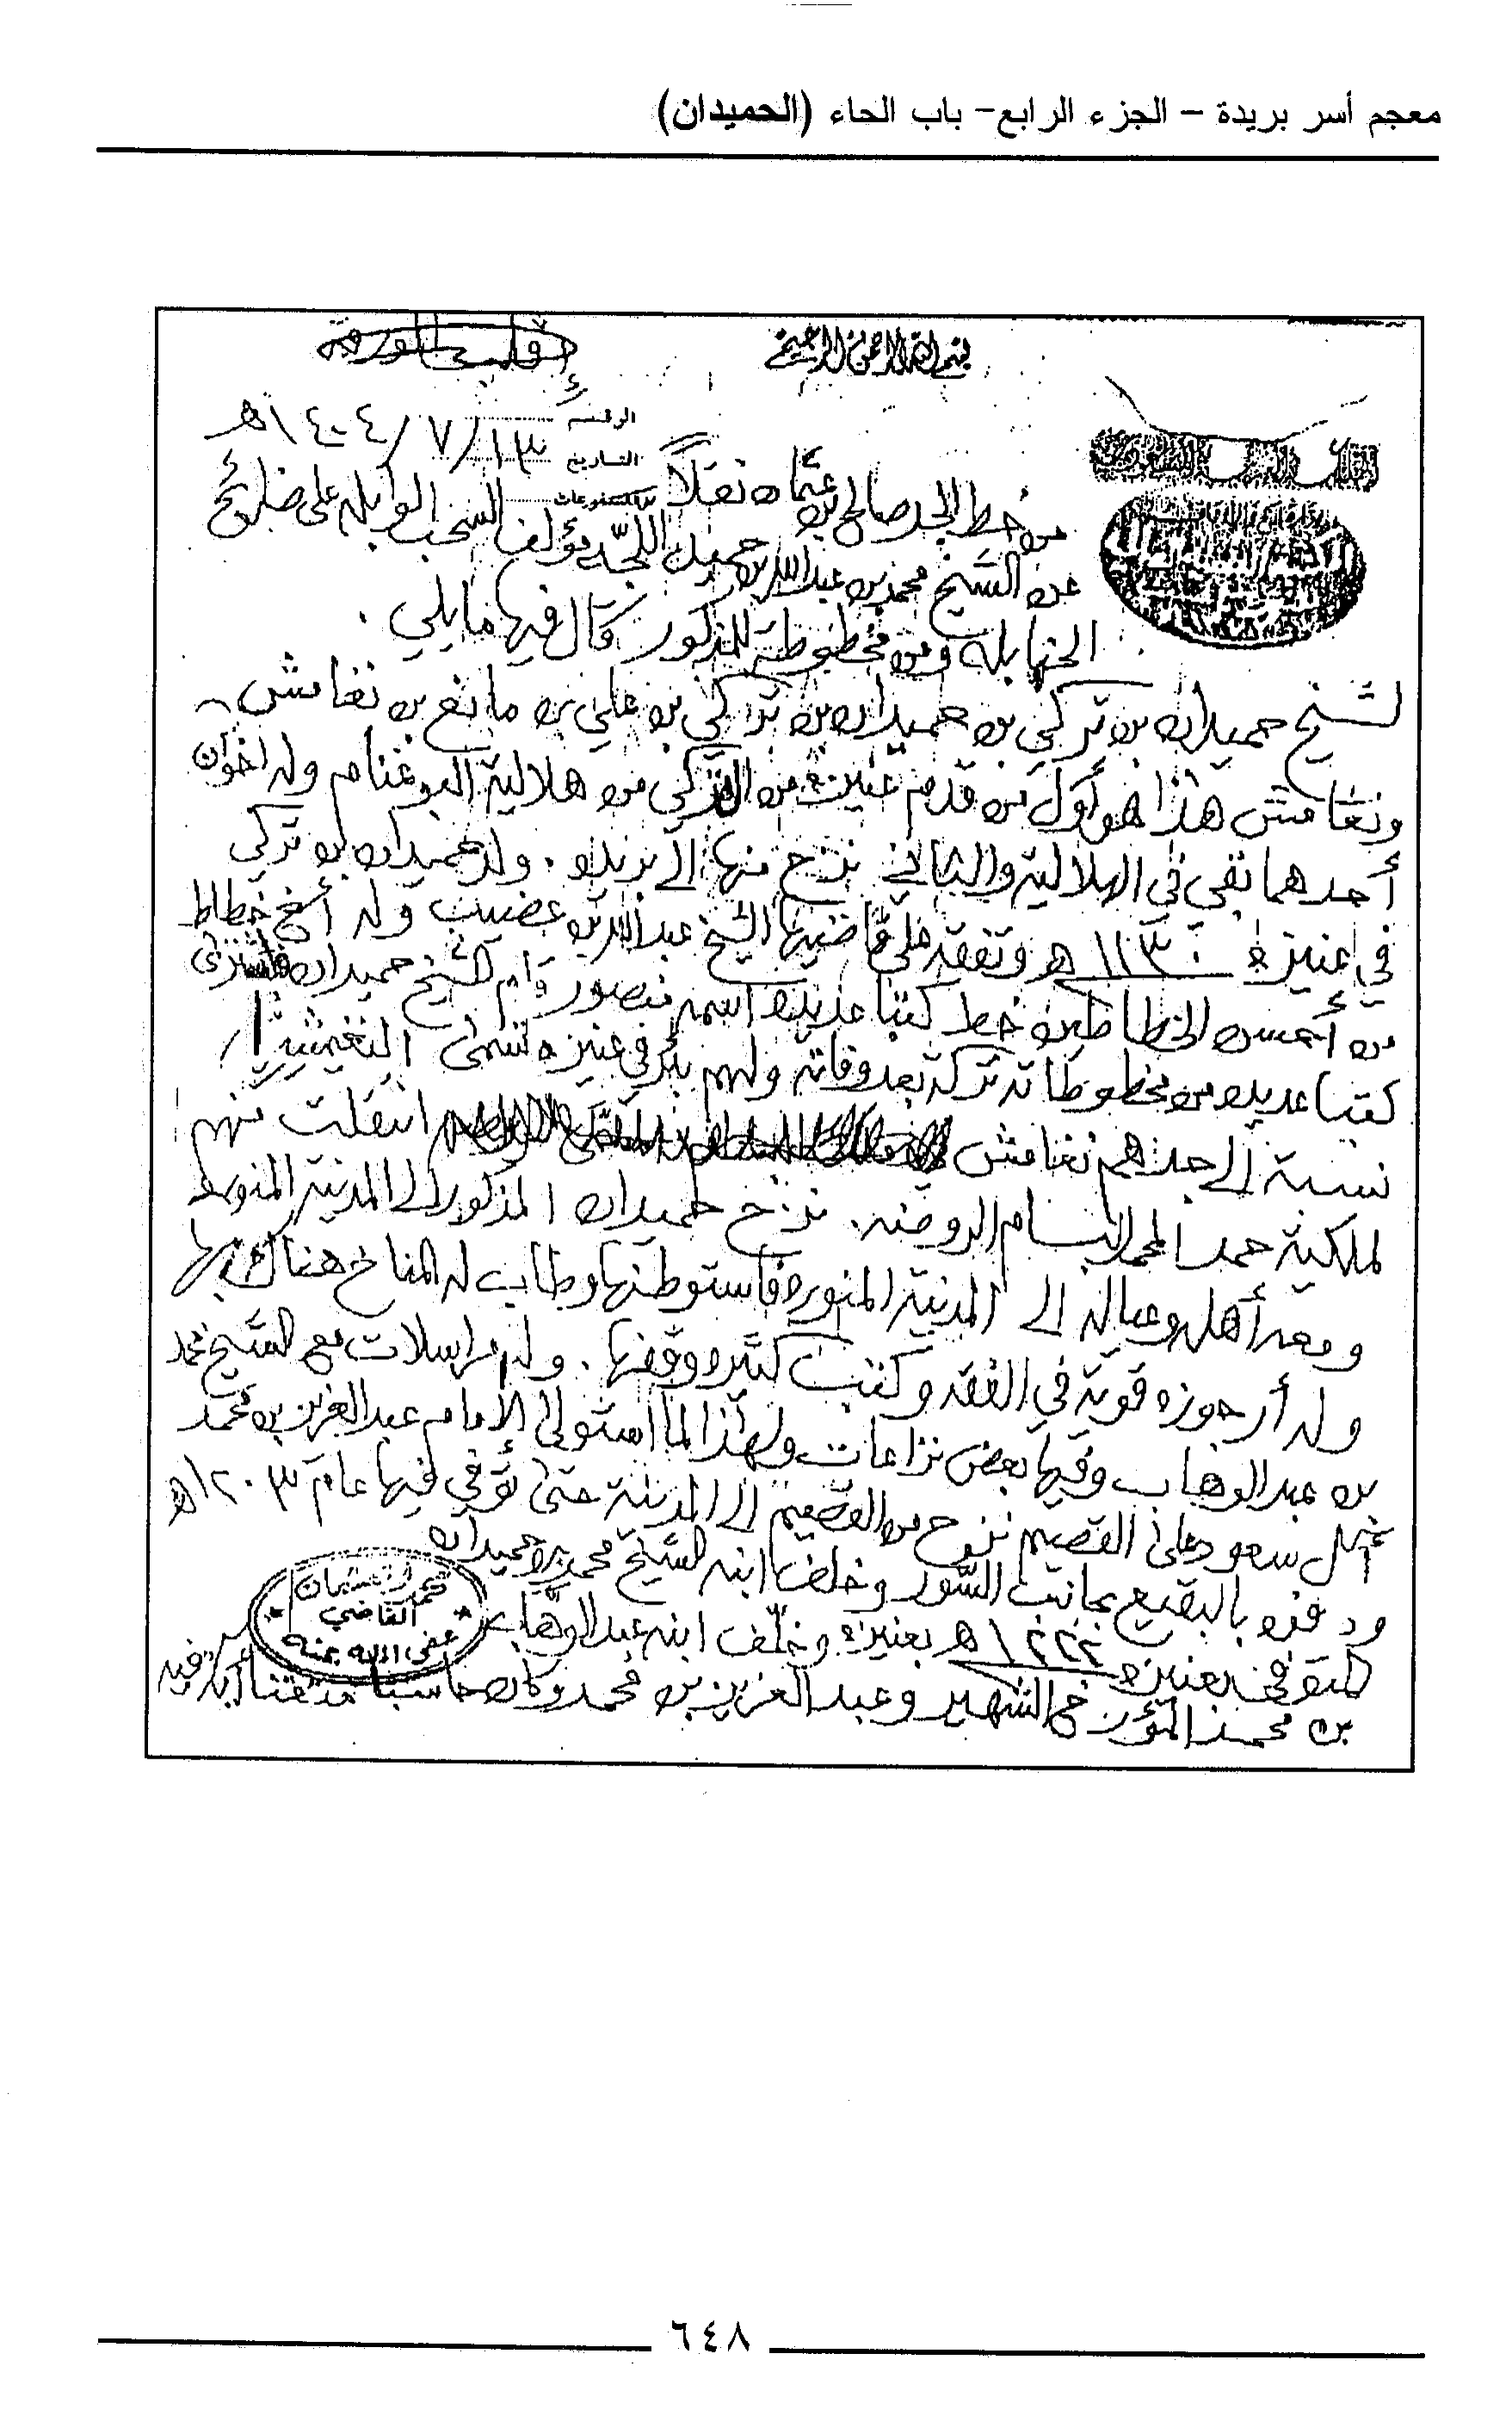 معجم أسر بريدة – الجزء الرابع– باب الحاء (الحميدان)
بسم الله الرحمن الرحيم
اقلب الورقة
الرقم
التاريخ ١٣/ ٧/ ١٤٠٤هـ
من خط الجد صالح بن عثمان نقلاً
عن الشيخ محمد بن عبدالله بن حميد مؤلف السحب الوابلة على ضرائح
الحنابلة ومن مخطوطة للمذكور قال فيها مايلي .
لشيخ حميدان بن تركي بن حميدان بن تركي بن علي بن مانع بن نغامش
ونغامش هذا هو أول من قدم عنيزة من التركي من هلالية البوغنام وله اخوان
أحدهما بقي في الهلالية والثاني نزح منها إلى بريده . ولد حميدان بن تركي
في عنيزة ١١٣٠هـ وتفقه على قاضيها الشيخ عبدالله بن عضيب وله أخ خطاط
من أحسن الخطاطين خط كتبا عديدة اسمه منصور قام الشيخ حميدان
كتبا عديده من مخطوطاته تركة بعد وفاته ولهم بئر في عنيزه تسمى النغيمشيه
نسبة إلى جدهم نغامش انتقلت منهم
لملكية حمد المحمد البسام الروضه . نزح حميدان المذكور إلى المدينة المنوره
ومعه أهله وعياله إلى المدينة المنوره فاستوطنها وطاب له المناخ هناك بها
وله أرجوزه قوية في الفقه وكتب كثيره وقفها . وله مراسلات مع الشيخ محمد
بن عبدالوهاب وفيها بعض نزاعات ولهذا لما استولى الإمام عبدالعزيز بن محمد
آل سعود على القصيم نزح من القصيم إلى المدينة حتى توفي فيها عام ١٢٠٣هـ
ودفن بالبقيع بجانب السور وخلف ابنه الشيخ محمد بن حميدان
المتوفى بعنيزه ١٢٢٢هـ بعنيزه وخلف ابنه عبدالوهاب
بن محمد المؤرخ الشهير وعبدالعزيز بن محمد وكان حاسبا متقنا
محمد بن عثمان
القاضي
عفى الله عنه
٦٤٨